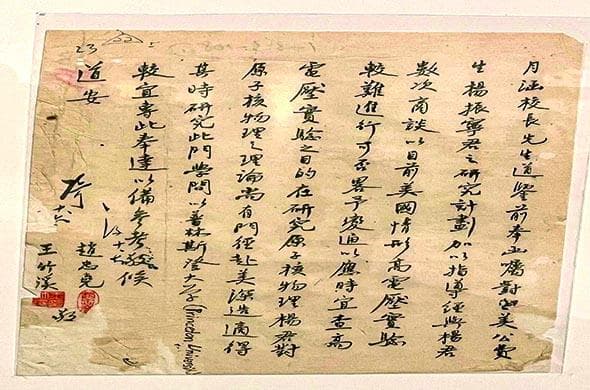 月涵校長先生道鑒前奉函囑對留美公費
生楊振寧君之研究計劃加以指導經與楊君
數次商談以目前美國情形高電壓實驗
較難進行可否畧予變通以應時宜查高
電壓實驗之目的在研究原子核物理楊君對
原子核物理之理論尚有門徑赴美深造適得
其時研究此門學問以普林斯登大學(Princeton University)
較宜專此奉達以備參考敬候
道安
趙忠堯
王竹溪